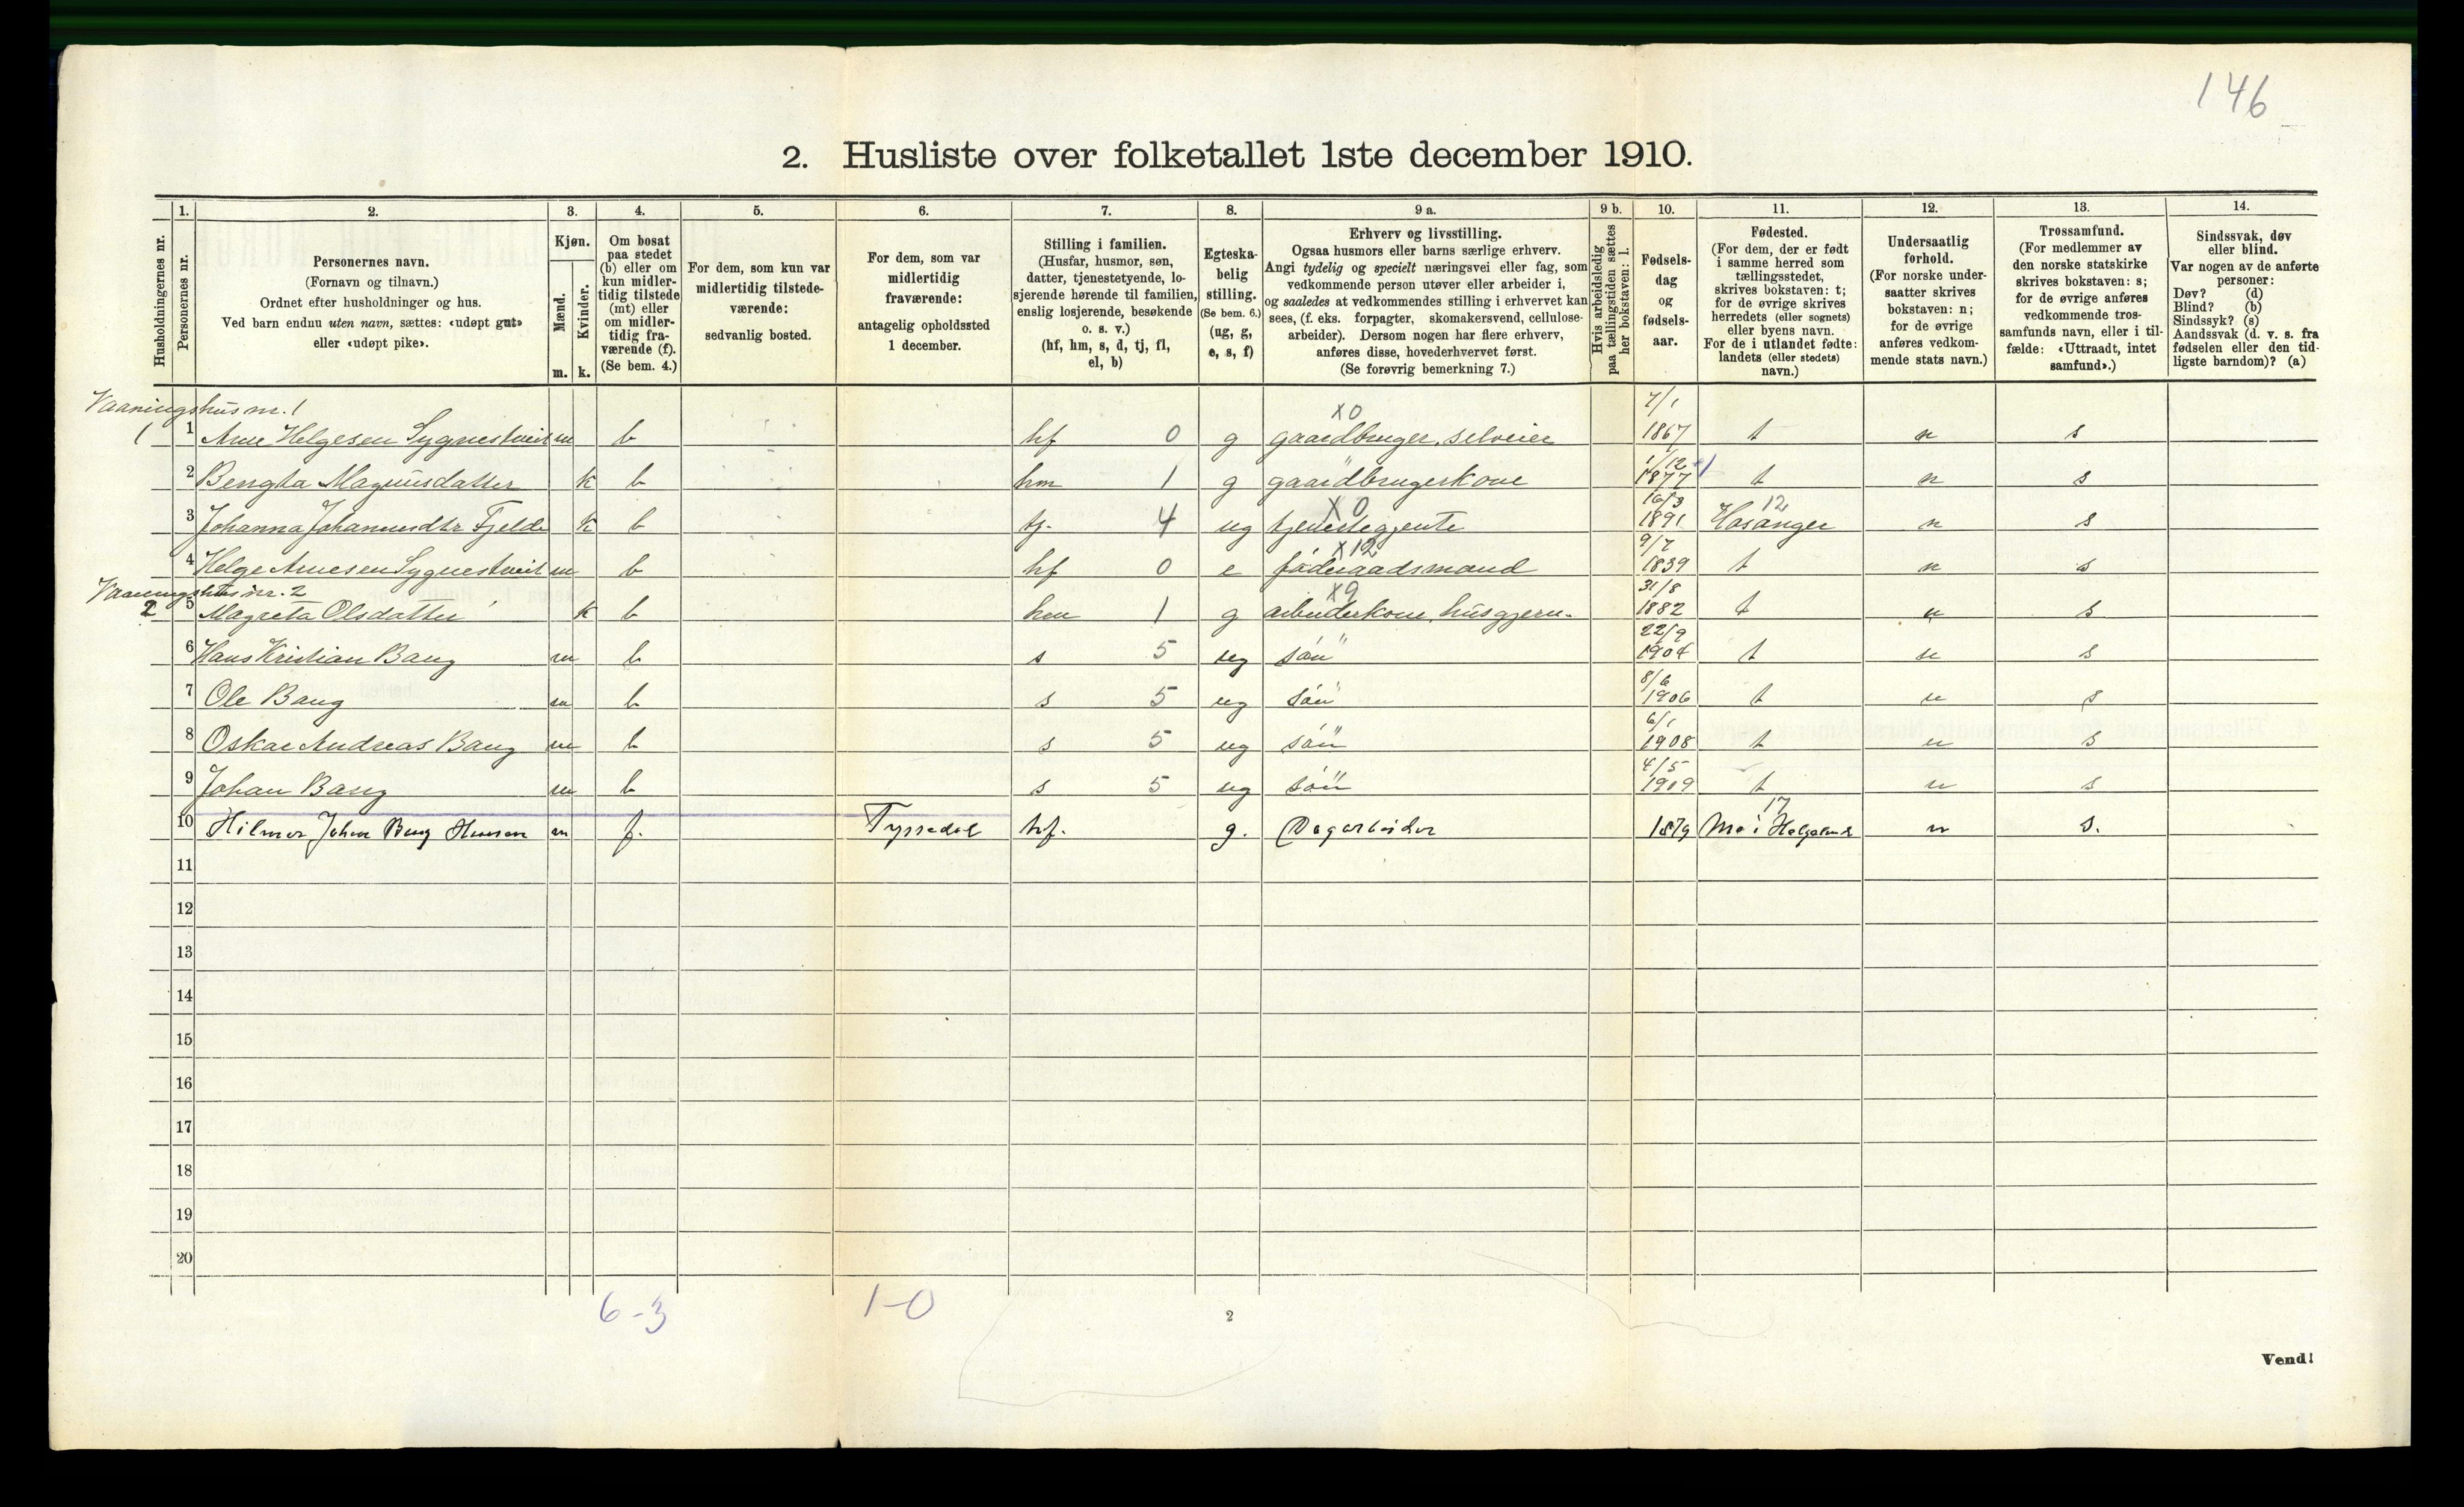 146
2. Husliste over folketallet 1ste december 1910.
Husholdningernes nr.
1.
Personernes nr.
2.
Personernes navn.
(Fornavn og tilnavn.)
Ordnet efter husholdninger og hus.
Ved barn endnu uten navn, sættes: «udøpt gut»
eller «udøpt pike».
3.
Kjøn.
Mænd.
Kvinder.
m. k.
4.
Om bosat
paa stedet
(b) eller om
kun midler-
tidig tilstede
(mt) eller
om midler-
tidig fra-
værende (f).
(Se bem. 4.)
5.
For dem, som kun var
midlertidig tilstede-
værende:
sedvanlig bosted.
6.
For dem, som var
midlertidig
fraværende:
antagelig opholdssted
1 december.
7.
Stilling i familien.
(Husfar, husmor, søn,
datter, tjenestetyende, lo-
sjerende hørende til familien,
enslig losjerende, besøkende
o. s. v.)
(hf, hm, s, d, tj, fl,
el, b)
8.
Egteska-
belig
stilling.
(Se bem. 6.)
(ug, g,
e, s, f)
9 a.
Erhverv og livsstilling.
Ogsaa husmors eller barns særlige erhverv.
Angi tydelig og specielt næringsvei eller fag, som
vedkommende person utøver eller arbeider i,
og saaledes at vedkommendes stilling i erhvervet kan
sees, (f. eks. forpagter, skomakersvend, cellulose-
arbeider). Dersom nogen har flere erhverv,
anføres disse, hovederhvervet først.
(Se forøvrig bemerkning 7.)
9 b.
Hvis arbeidsledig
paa tællingstiden sættes
her bokstaven: l.
10.
Fødsels-
dag
og
fødsels-
aar.
11.
Fødested.
(For dem, der er født
i samme herred som
tællingsstedet,
skrives bokstaven: t;
for de øvrige skrives
herredets (eller sognets)
eller byens navn.
For de i utlandet fødte:
landets (eller stedets)
navn.)
12.
Undersaatlig
forhold.
(For norske under-
saatter skrives
bokstaven: n;
for de øvrige
anføres vedkom-
mende stats navn.)
13.
Trossamfund.
(For medlemmer av
den norske statskirke
skrives bokstaven: s;
for de øvrige anføres
vedkommende tros-
samfunds navn, eller i til-
fælde: «Uttraadt, intet
samfund».)
14.
Sindssvak, døv
eller blind.
Var nogen av de anførte
personer:
Døv? (d)
Blind? (b)
Sindssyk? (s)
Aandssvak (d. v. s. fra
fødselen eller den tid-
ligste barndom)? (a)
Vaaningshus nr. 1
x0 7/1
1 1 Arne Helgesen Sygnestveit m b hf 0 g gaardbruger, selveier 1867 t n s
1/12
2 Bengta Magnusdatter k b hm 1 g gaardbrugerkone 1877 t n s
x0 16/3 12
3 Johanna Johannesdtr Fjelde k b tj. 4 ug tjenestegjente 1891 Hosanger n s
x12 9/7
4 Helge Arnesen Sygnestveit m b hf 0 e føderaadsmand 1839 t n s
Vaaningshus nr. 2
x9 31/8
2 5 Magreta Olsdatter k b hm 1 g arbeiderkone, husgjern. 1882 t n s
22/9
6 Hans Kristian Bang m b s 5 ug søn 1904 t n s
8/6
7 Ole Bang m b s 5 ug søn 1906 t n s
6/1
8 Oskar Andreas Bang m b s 5 ug søn 1908 t n s
4/5
9 Johan Bang m b s 5 ug søn 1909 t n s
17
10 Hilmer Johan Bang Hansen m f. Tyssedal hf. g. Dagarbeider 1879 Mo i Helgeland n s.
11
12
13
14
15
16
17
18
19
20
6-3 1-0
2
Vend!